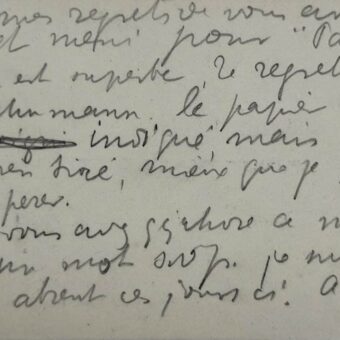 mes regrets de vous av
et merci pour "Pa
est superbe, je regret
mann. le papier
indiqué mais
en tiré, mieux que je
perer.
vous avez qqchose a m
un mot svp. je su
absent ces jours ci. A